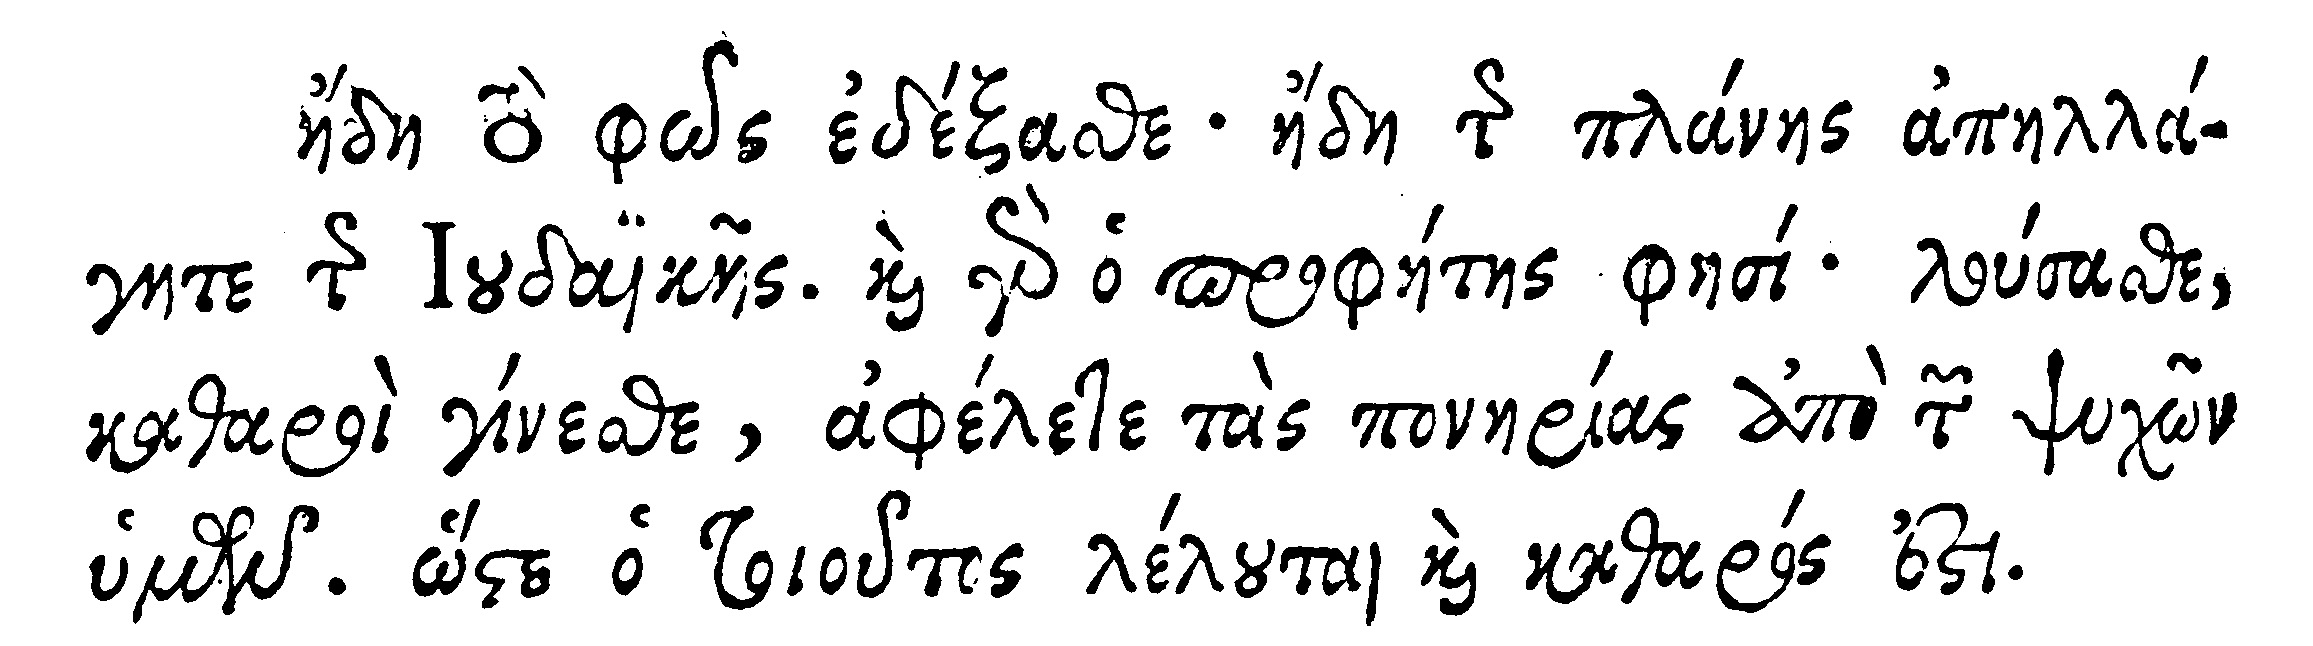 ἤδη τὸ φῶς ἐδέξασθε· ἤδη τῆς πλάνης ἀπηλλά-
γητε τῆς Ιουδαϊκῆς. καὶ γὰρ ὁ προφήτης φησί· λούσασθε,
καθαροὶ γίνεσθε, ἀφέλετε τὰς πονηρίας ἀπὸ τῶν ψυχῶν
ὑμῶν. ὥστε ὁ τοιοῦτος λέλουται καὶ καθαρός ἐστι.